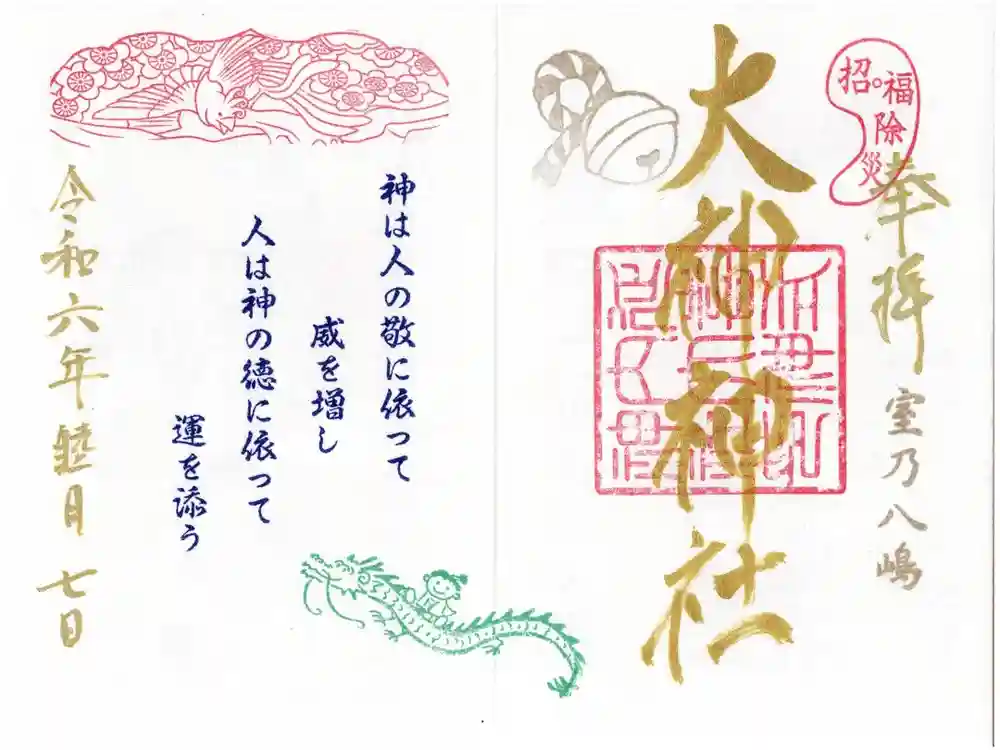 奉拝
室乃八嶋
招福除災
大神神社
神は人の敬に依つて
威を増し
人は神の徳に依つて
運を添う
令和六年睦月七日